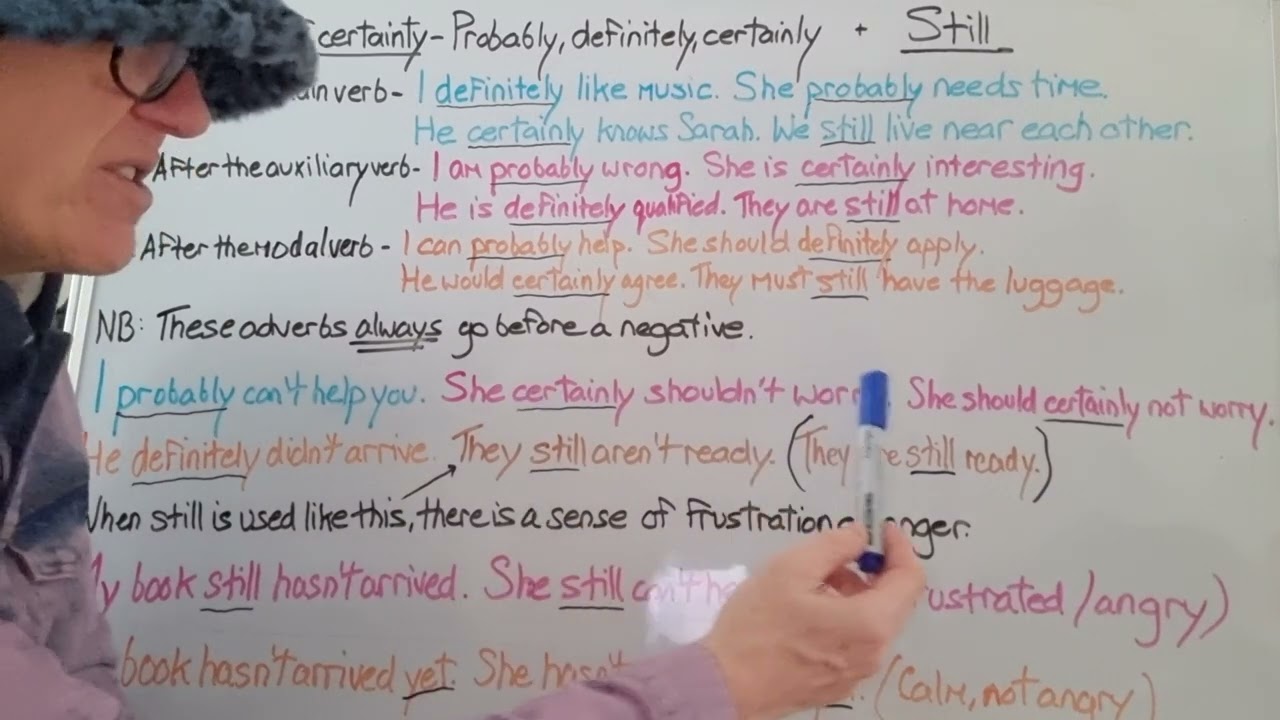 certainty - Probably, definitely, certainly + Still
verb - I definitely like music. She probably needs time.
He certainly knows Sarah. We still live near each other.
After the auxiliary verb - I am probably wrong. She is certainly interesting.
He is definitely qualified. They are still at home.
After the modal verb - I can probably help. She should definitely apply.
He would certainly agree. They must still have the luggage.
NB: These adverbs always go before a negative.
I probably can't help you. She certainly shouldn't She should certainly not worry.
He definitely didn't arrive. They still aren't ready. (They still ready.)
When still is used like this, there is a sense of frustration
book still hasn't arrived. She still /angry)
book hasn't arrived yet. She (Calm, not angry)